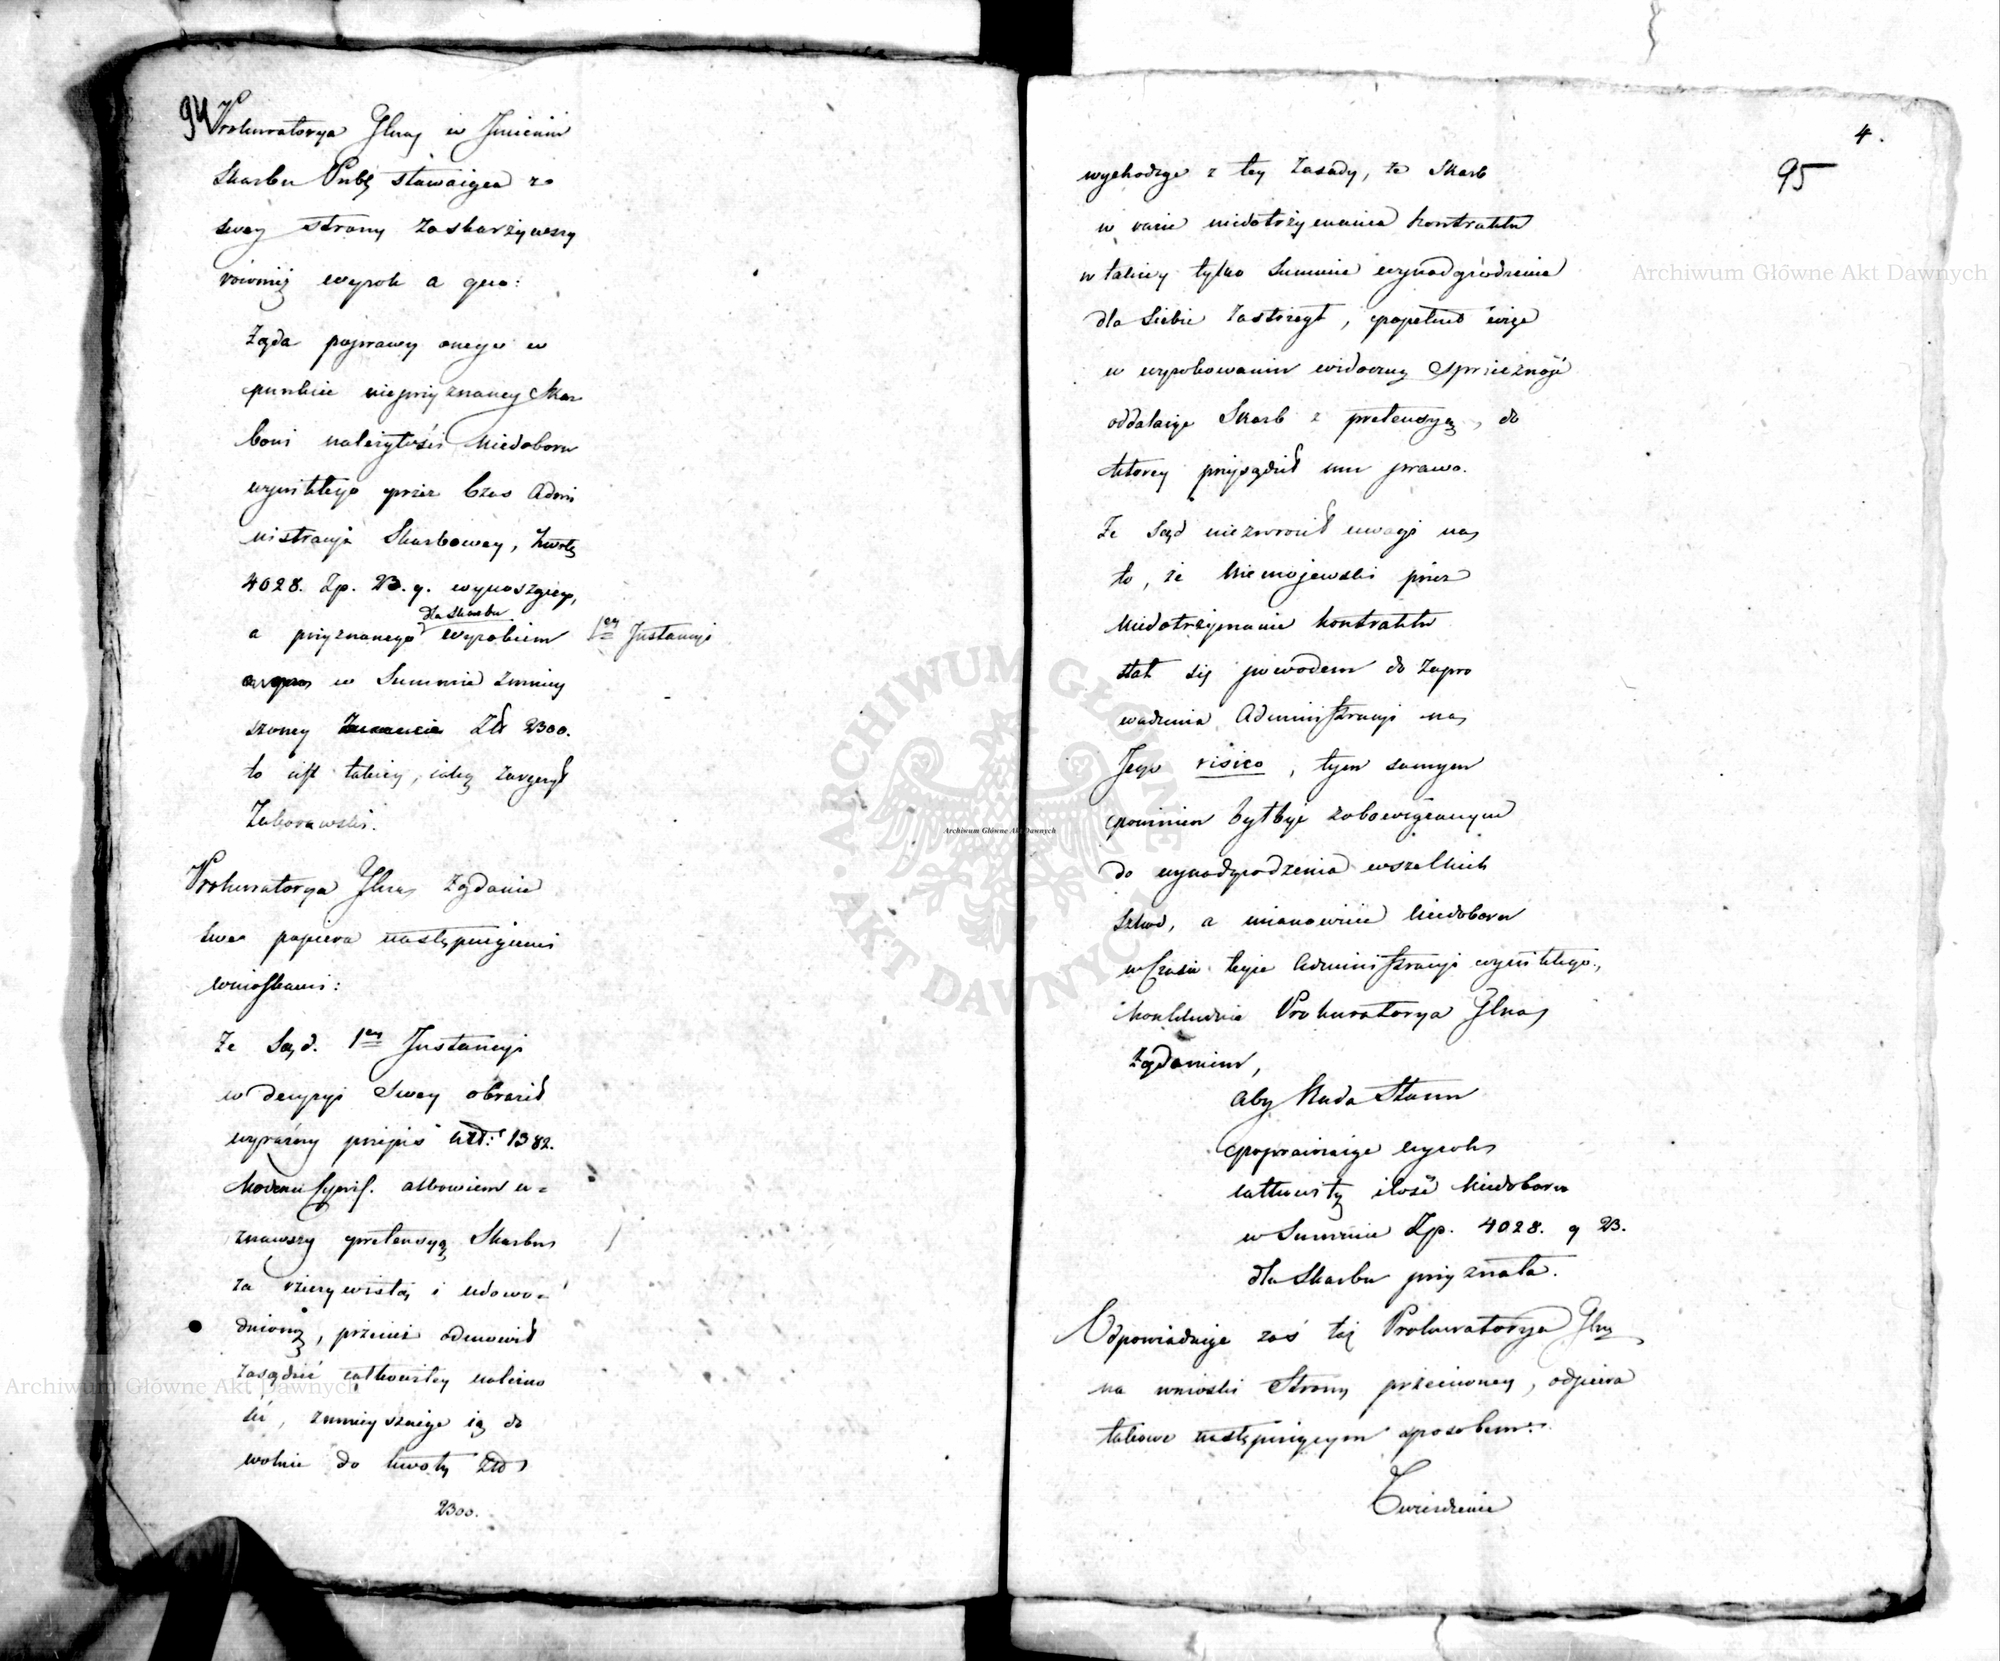 94
Prokuratorya Glna w Imieniu
Skarbu Publ stawaiąca ze
swey strony zaskarżywszy
również wyrok a quo:
Żąda poprawy onego w
punkcie nieprzyznaney Skar
bowi należytości Niedoboru
wynikłego przez Czas Admi
nistracyi Skarbowey, kwotę
4028. Zp. 23. g. wynoszącego,
a przyznanego dla Skarbu wyrokiem 1ey Instancyi
w Summie zmniey
szoney Zł 2300.
to iest takiey, iaką zaręczył
Zaborowski.
Prokuratorya Glna żądanie
swe popiera następuiącemi
wnioskami:
Że Sąd 1ey Instancyi
w decyzyi swey obraził
wyraźny przepis art: 1382.
Kodexu Cywil. albowiem u-
znawszy pretensyą Skarbu
za rzeczywistą i udowo-
dnioną, przecież odmówił
zasądzić całkowitey należno
ści, zmnieyszaiąc ią do
wolnie do kwoty Złł
2300.
4.
95
wychodząc z tey zasady, że Skarb
w razie niedotrzymania kontraktu
w takiey tylko Summie wynadgrodzenia
dla siebie zastrzegł, popełnił więc
w wyrokowaniu widoczną sprzeczność
oddalaiąc Skarb z pretensyą, do
którey przysądził mu prawo.
Że Sąd niezwrócił uwagi na
to, że Niemojewski przez
Niedotrzymanie kontraktu
stał się powodem do zapro
wadzenia Administracyi na
Jego risico, tym samym
powinien byłby być zobowiązanym
do wynadgrodzenia wszelkich
szkód, a mianowicie Niedoboru
w Czasie teyże Administracyi wynikłego.,
Konkluduie Prokuratorya Glna
żądaniem,
aby Rada Stanu
poprawiaiąc wyrok
całkowitą ilość Niedoboru
w Summie Zp. 4028. g 23.
dla Skarbu przyznała.
Odpowiadaiąc zaś taż Prokuratorya Glna
na wnioski Strony przeciwney, odpiera
takowe następuiącym sposobem:
Twierdzenie
Archiwum Główne Akt Dawnych
Archiwum Główne Akt Dawnych
Archiwum Główne Akt Dawnych
ARCHIWUM GŁÓWNE AKT DAWNYCH